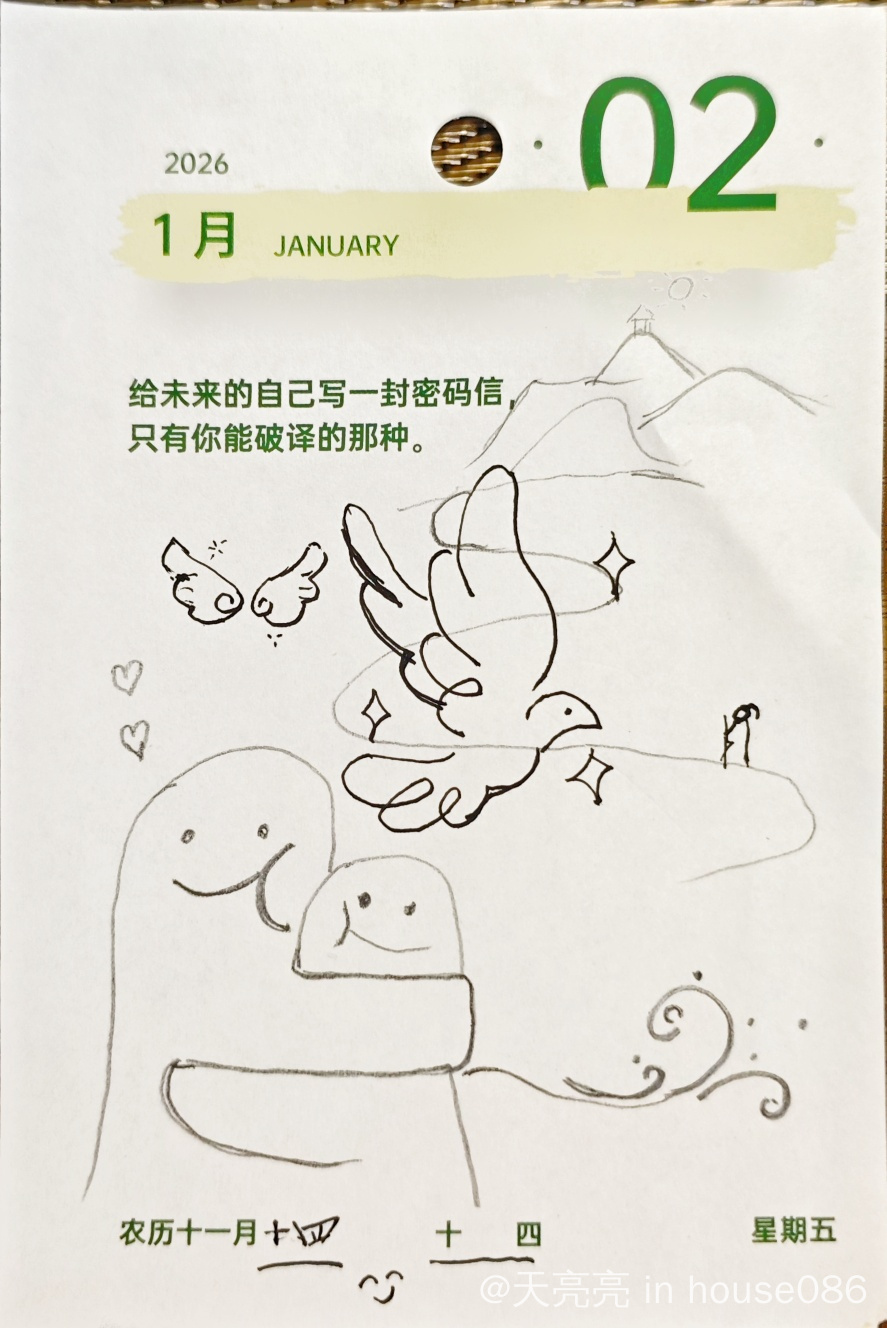 2026
02
1月 JANUARY
给未来的自己写一封密码信，
只有你能破译的那种。
农历十一月十四 十四 星期五
@天亮亮 in house086